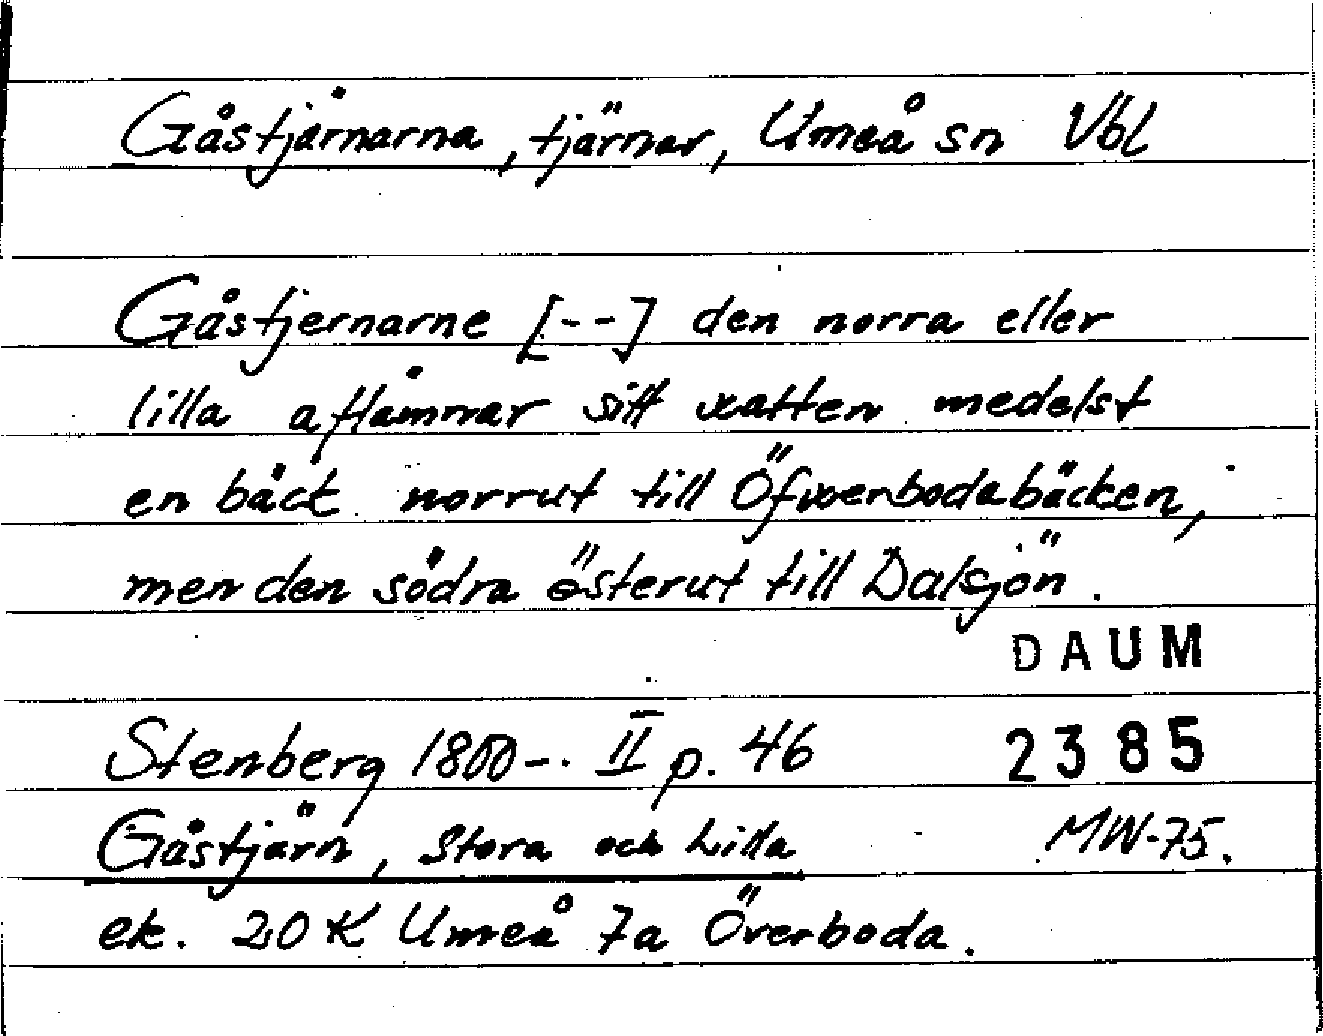 Gåstjärnarna, tjärnar, Umeå sn Vbl
Gåstjernarne [--] den norra eller
lilla aflämnar sitt vatten medelst
en bäck norrut till Öfverbodabäcken,
men den södra österut till Dalsjön.
DAUM
Stenberg 1800-. II p. 46 2385
Gåstjärn, Stora och Lilla MW-75.
ek. 20K Umeå 7a Överboda.